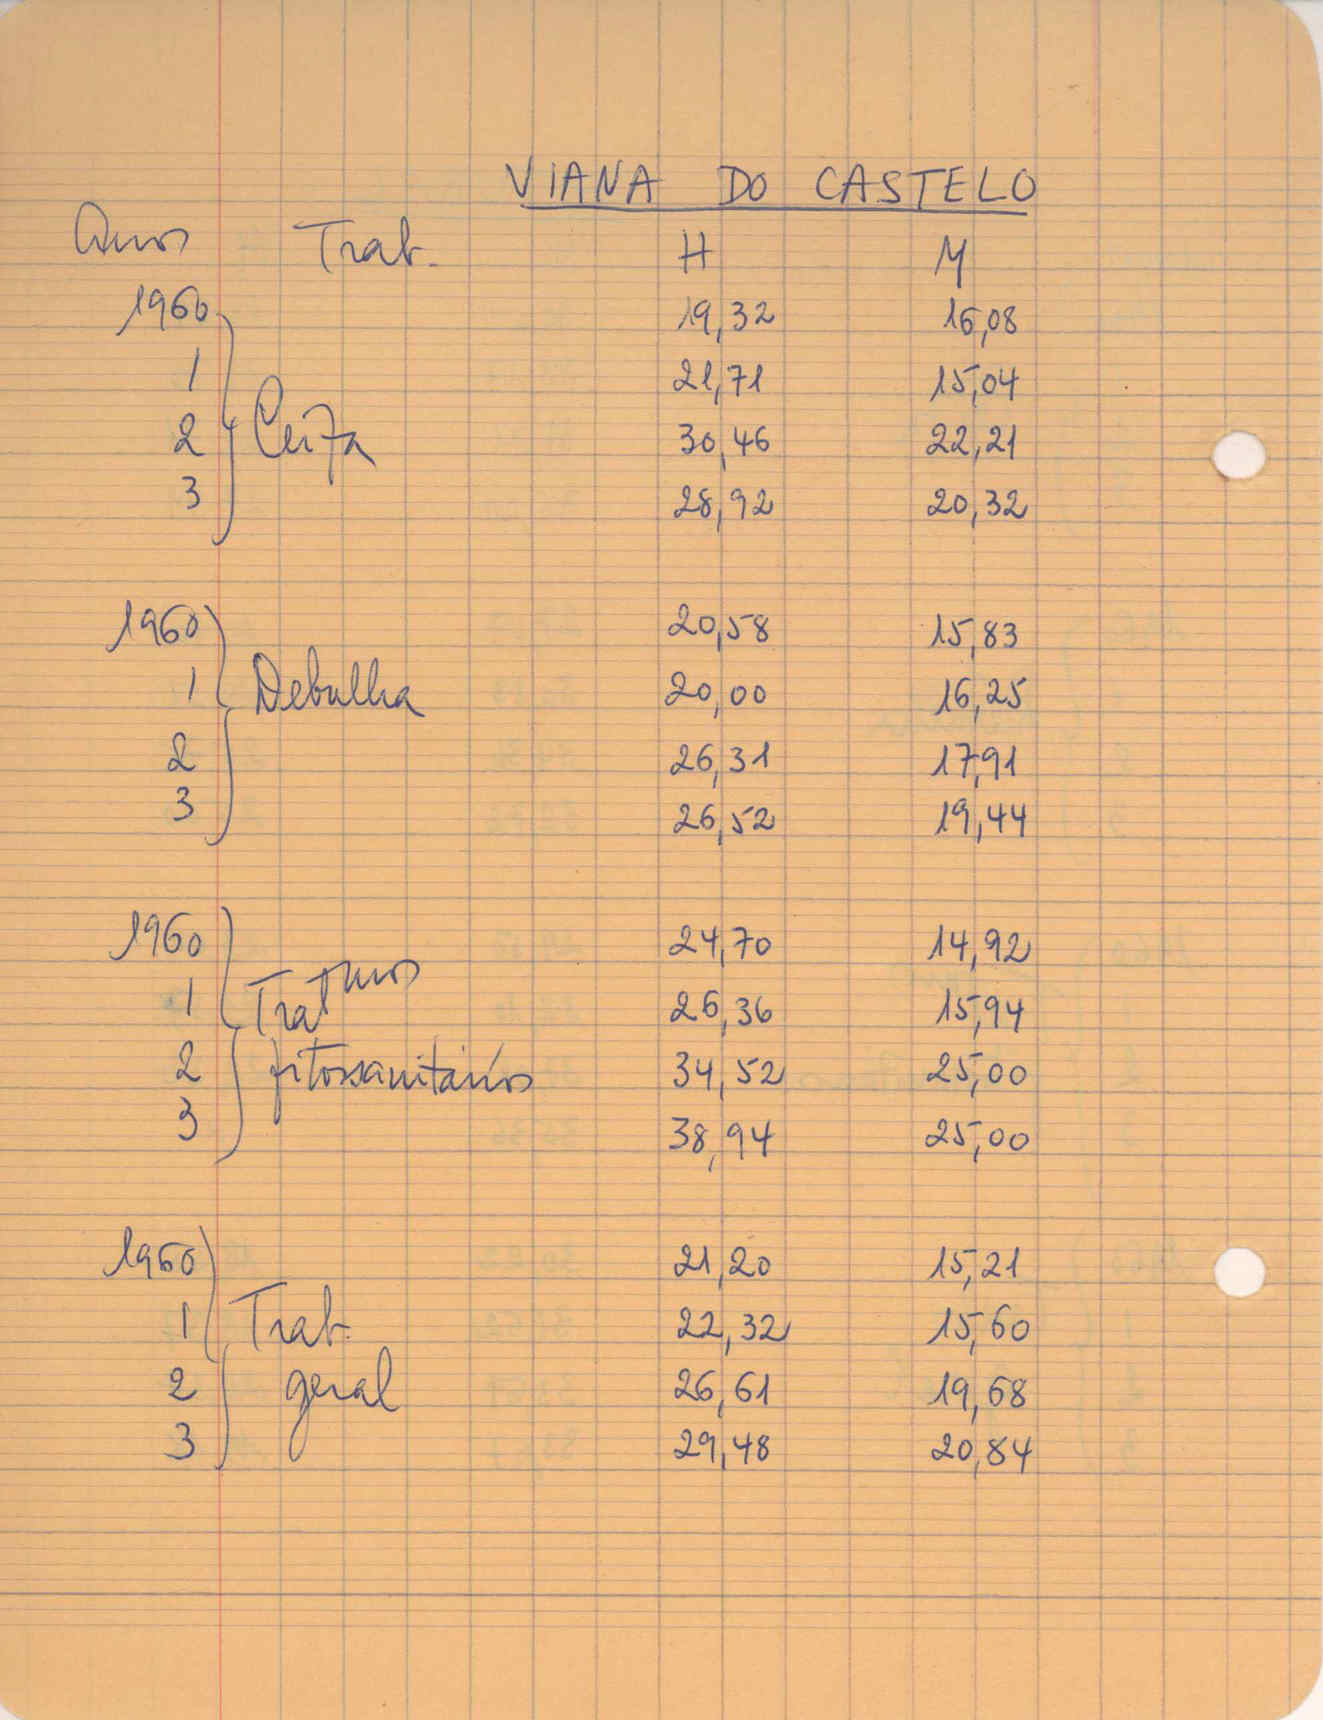 VIANA DO CASTELO
Anos Trab. H M
1960 19,32 16,08
1 21,71 15,04
2 Ceifa 30,46 22,21
3 28,92 20,32
1960 20,58 15,83
1 Debulha 20,00 16,25
2 26,31 17,91
3 26,52 19,44
1960 24,70 14,92
1 Tratmos 26,36 15,94
2 fitossanitários 34,52 25,00
3 38,94 25,00
1960 21,20 15,21
1 Trab. 22,32 15,60
2 geral 26,61 19,68
3 29,48 20,84